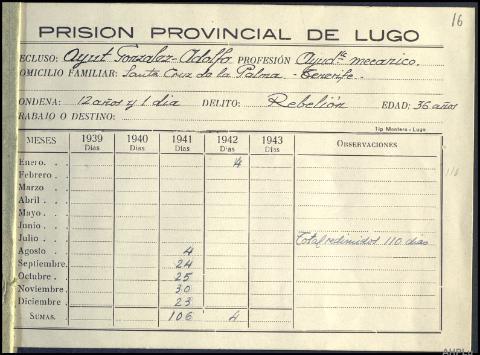 16
PRISION PROVINCIAL DE LUGO
ECLUSO: Ayut Gonzalez - Adolfo PROFESIÓN Ayudte mecanico.
OMICILIO FAMILIAR: Santa Cruz de la Palma - Tenerife.
ONDENA: 12 años y 1 dia DELITO: Rebelión EDAD: 36 años
RABAJO O DESTINO:
Tip Montero - Lugo
MESES 1939 Días 1940 Días 1941 Días 1942 Días 1943 Días OBSERVACIONES
Enero. 4
Febrero
Marzo
Abril
Mayo.
Junio
Julio Total redimidos 110 dias
Agosto 4
Septiembre. 24
Octubre. 25
Noviembre 30
Diciembre 23
SUMAS. 106 4